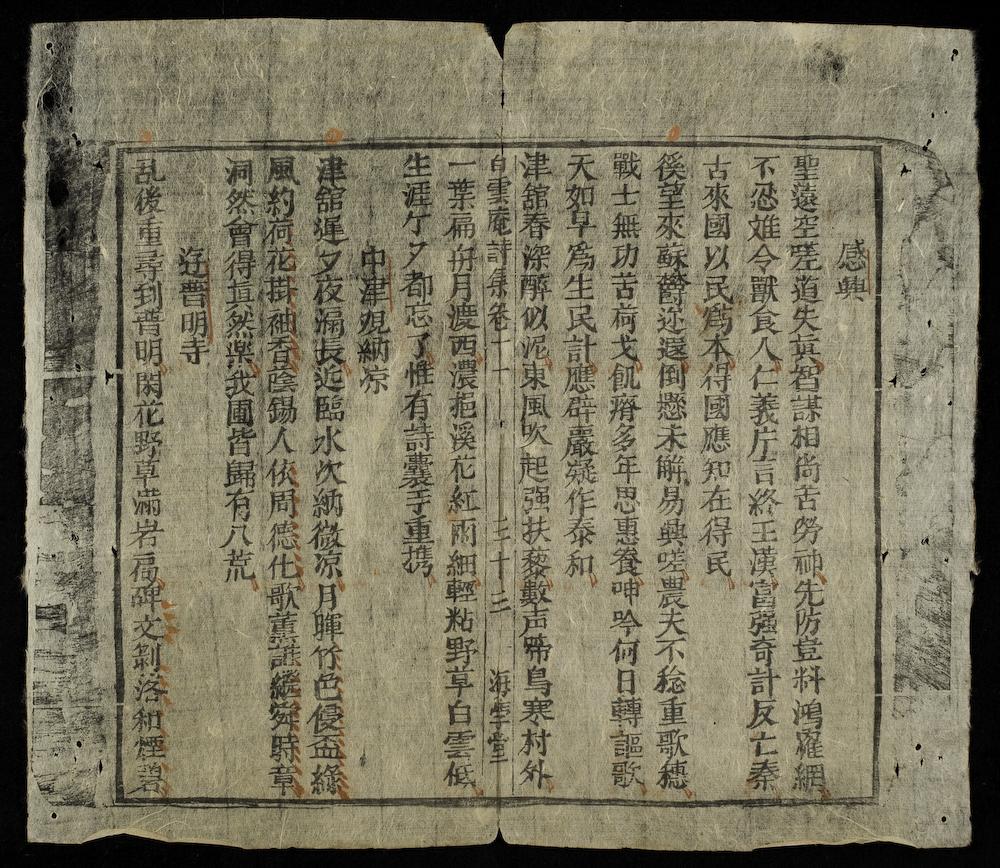 感興
聖遠空嗟道失真智謀相尚苦勞神先防豈料鴻罹網
不忍难令獸食人仁義片言終王漢富强奇計反亡秦
古來國以民為本得國應知在得民
徯望來蘇欝迩遐倒懸未解易興嗟農夫不稔重歌穗
戰士無功苦荷戈飢瘠多年思惠養呻吟何日轉謳歌
天如早為生民計應辟嚴凝作泰和
津舘春深醉似泥東風吹起强扶藜數声啼鳥寒村外
白雲庵詩集卷二 三十三 海學堂
一葉扁舟月渡西濃抱溪花紅雨細輕粘野草白雲低
生涯今夕都忘了惟有詩囊手重携
中津观納凉
津舘遲夕夜漏長近臨水次納微凉月暉竹色優盃緣
風約荷花掛袖香蔭錫人依周德化歌薫誰繼舜時章
洞然會得真然樂我圃皆歸有八荒
遊普明寺
乱後重尋到普明閑花野草滿岩扃碑文剝落和煙碧